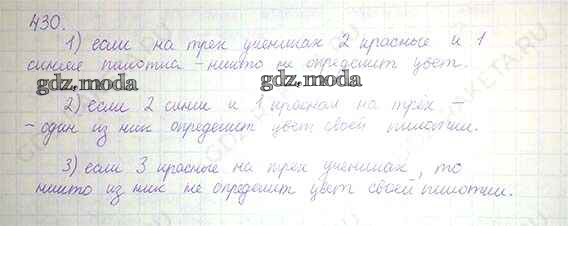 430.
1) если на трех ученицах 2 красные и 1
синяя пилотка - никто не определит цвет.
gdz.moda
gdz.moda
2) если 2 синие и 1 красная на трёх -
- один из них определит цвет своей пилотки.
3) если 3 красные на трех ученицах, то
никто из них не определит цвет своей пилотки.